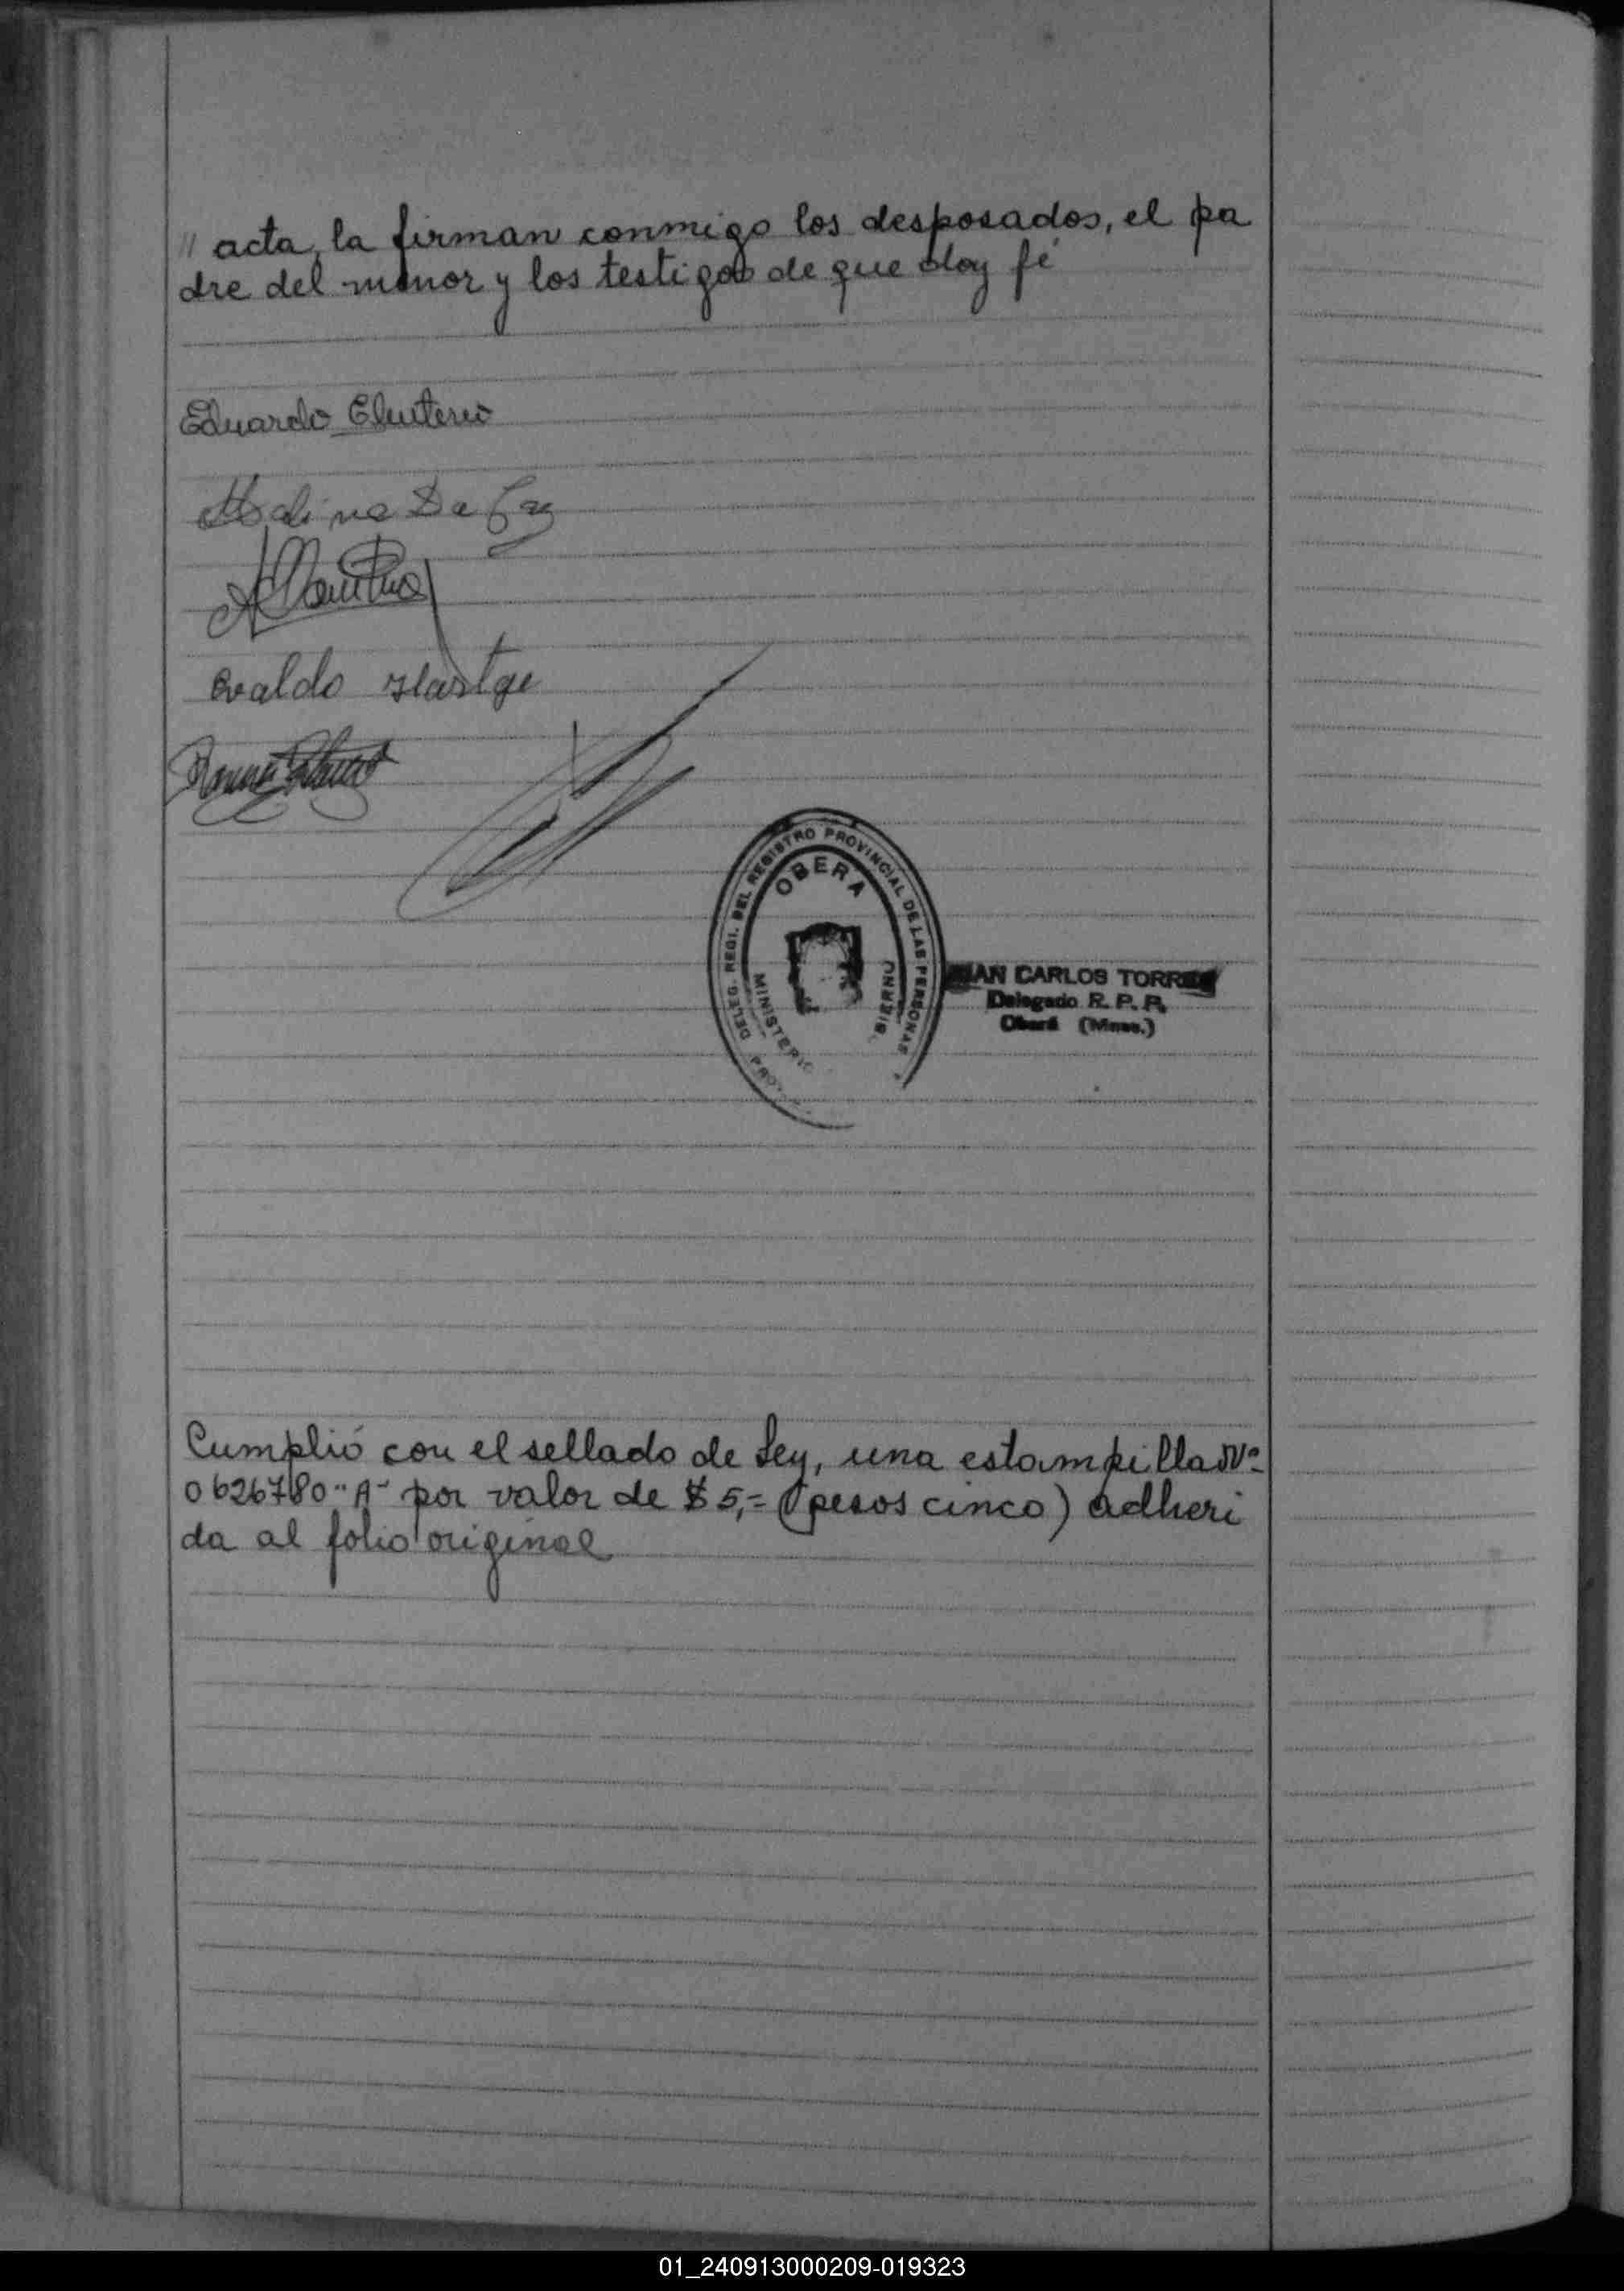 " acta, la firman conmigo los desposados, el pa
dre del menor y los testigos de que doy fé
Eduardo Eleuterio
Da
Ovaldo Hartge
DELEG. REGI. DEL REGISTRO PROVINCIAL DE LAS PERSONAS
OBERA
MINISTERIO
JUAN CARLOS TORRES
Delegado R. P. P.
Oberá (Mnes.)
Cumplió con el sellado de Ley, una estampilla Nº
0626780 "A" por valor de $ 5,= (pesos cinco) adheri
da al folio original
01_240913000209-019323